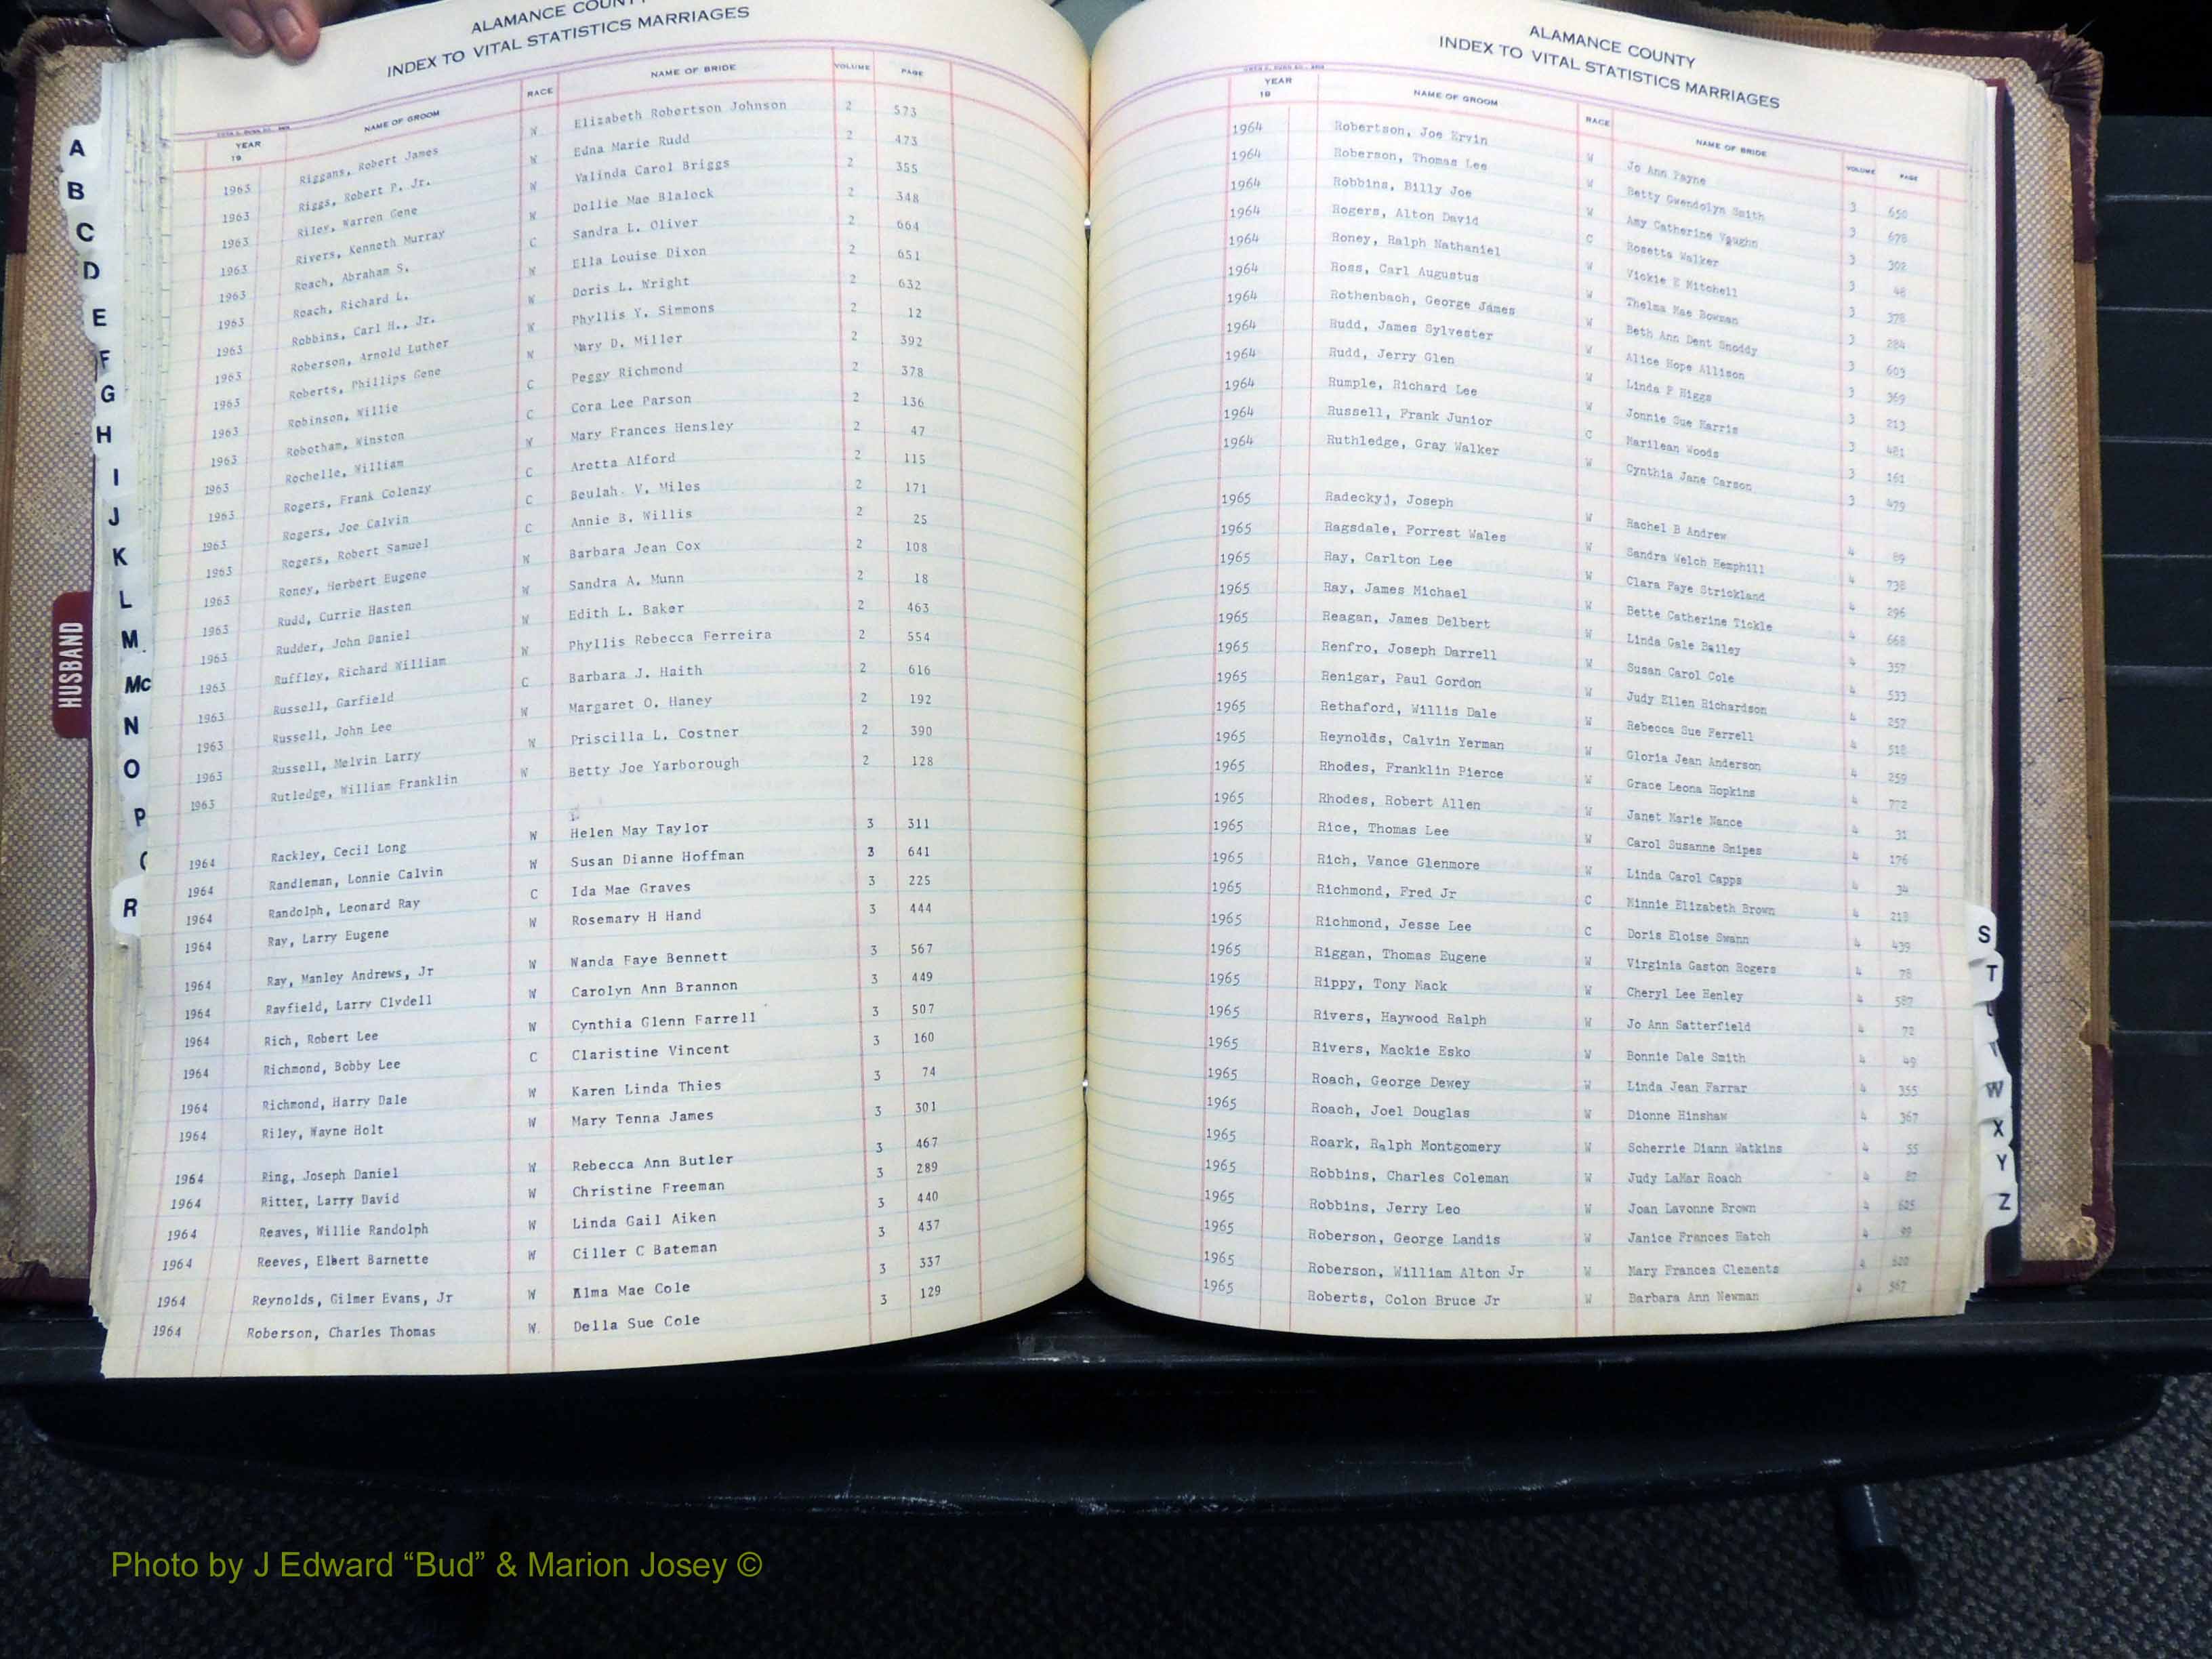 ALAMANCE COUNTY
INDEX TO VITAL STATISTICS MARRIAGES
YEAR 19 NAME OF GROOM RACE NAME OF BRIDE VOLUME PAGE
1963 Riggans, Robert James W Elizabeth Robertson Johnson 2 573
1963 Riggs, Robert P. Jr. W Edna Marie Rudd 2 473
1963 Riley, Warren Gene W Valinda Carol Briggs 2 355
1963 Rivers, Kenneth Murray W Dollie Mae Blalock 2 348
1963 Roach, Abraham S. C Sandra L. Oliver 2 664
1963 Roach, Richard L. W Ella Louise Dixon 2 651
1963 Robbins, Carl H., Jr. W Doris L. Wright 2 632
1963 Roberson, Arnold Luther W Phyllis Y. Simmons 2 12
1963 Roberts, Phillips Gene W Mary D. Miller 2 392
1963 Robinson, Willie C Peggy Richmond 2 378
1963 Robotham, Winston C Cora Lee Parson 2 136
1963 Rochelle, William W Mary Frances Hensley 2 47
1963 Rogers, Frank Colenzy C Aretta Alford 2 115
1963 Rogers, Joe Calvin C Beulah V. Miles 2 171
1963 Rogers, Robert Samuel C Annie B. Willis 2 25
1963 Roney, Herbert Eugene W Barbara Jean Cox 2 108
1963 Rudd, Currie Hasten W Sandra A. Munn 2 18
1963 Rudder, John Daniel W Edith L. Baker 2 463
1963 Ruffley, Richard William W Phyllis Rebecca Ferreira 2 554
1963 Russell, Garfield C Barbara J. Haith 2 616
1963 Russell, John Lee W Margaret O. Haney 2 192
1963 Russell, Melvin Larry W Priscilla L. Costner 2 390
1963 Rutledge, William Franklin W Betty Joe Yarborough 2 128
1964 Rackley, Cecil Long W Helen May Taylor 3 311
1964 Randleman, Lonnie Calvin W Susan Dianne Hoffman 3 641
1964 Randolph, Leonard Ray C Ida Mae Graves 3 225
1964 Ray, Larry Eugene W Rosemary H Hand 3 444
1964 Ray, Manley Andrews, Jr W Wanda Faye Bennett 3 567
1964 Rayfield, Larry Clydell W Carolyn Ann Brannon 3 449
1964 Rich, Robert Lee W Cynthia Glenn Farrell 3 507
1964 Richmond, Bobby Lee C Claristine Vincent 3 160
1964 Richmond, Harry Dale W Karen Linda Thies 3 74
1964 Riley, Wayne Holt W Mary Tenna James 3 301
1964 Ring, Joseph Daniel W Rebecca Ann Butler 3 467
1964 Ritter, Larry David W Christine Freeman 3 289
1964 Reaves, Willie Randolph W Linda Gail Aiken 3 440
1964 Reeves, Elbert Barnette W Ciller C Bateman 3 437
1964 Reynolds, Gilmer Evans, Jr W Alma Mae Cole 3 337
1964 Roberson, Charles Thomas W Della Sue Cole 3 129
A
B
C
D
E
F
G
H
I
J
K
L
M
Mc
N
O
P
R
HUSBAND
ALAMANCE COUNTY
INDEX TO VITAL STATISTICS MARRIAGES
YEAR 19 NAME OF GROOM RACE NAME OF BRIDE VOLUME PAGE
1964 Robertson, Joe Ervin W Jo Ann Payne 3 650
1964 Roberson, Thomas Lee W Betty Gwendolyn Smith 3 678
1964 Robbins, Billy Joe W Amy Catherine Vaughn 3 302
1964 Rogers, Alton David C Rosetta Walker 3 48
1964 Roney, Ralph Nathaniel W Vickie E Mitchell 3 378
1964 Ross, Carl Augustus W Thelma Mae Bowman 3 284
1964 Rothenbach, George James W Beth Ann Dent Snoddy 3 603
1964 Rudd, James Sylvester W Alice Hope Allison 3 369
1964 Rudd, Jerry Glen W Linda F Higgs 3 213
1964 Rumple, Richard Lee W Jonnie Sue Harris 3 481
1964 Russell, Frank Junior C Marilean Woods 3 161
1964 Ruthledge, Gray Walker W Cynthia Jane Carson 3 479
1965 Radeckyj, Joseph W Rachel B Andrew 4 89
1965 Ragsdale, Forrest Wales W Sandra Welch Hemphill 4 738
1965 Ray, Carlton Lee W Clara Faye Strickland 4 296
1965 Ray, James Michael W Bette Catherine Tickle 4 668
1965 Reagan, James Delbert W Linda Gale Bailey 4 357
1965 Renfro, Joseph Darrell W Susan Carol Cole 4 533
1965 Renigar, Paul Gordon W Judy Ellen Richardson 4 257
1965 Rethaford, Willis Dale W Rebecca Sue Ferrell 4 518
1965 Reynolds, Calvin Yerman W Gloria Jean Anderson 4 259
1965 Rhodes, Franklin Pierce W Grace Leona Hopkins 4 772
1965 Rhodes, Robert Allen W Janet Marie Nance 4 31
1965 Rice, Thomas Lee W Carol Susanne Snipes 4 176
1965 Rich, Vance Glenmore W Linda Carol Capps 4 34
1965 Richmond, Fred Jr C Minnie Elizabeth Brown 4 218
1965 Richmond, Jesse Lee C Doris Eloise Swann 4 439
1965 Riggan, Thomas Eugene W Virginia Gaston Rogers 4 78
1965 Rippy, Tony Mack W Cheryl Lee Henley 4 587
1965 Rivers, Haywood Ralph W Jo Ann Satterfield 4 72
1965 Rivers, Mackie Esko W Bonnie Dale Smith 4 49
1965 Roach, George Dewey W Linda Jean Farrar 4 355
1965 Roach, Joel Douglas W Dionne Hinshaw 4 367
1965 Roark, Ralph Montgomery W Scherrie Diann Watkins 4 55
1965 Robbins, Charles Coleman W Judy LaMar Roach 4
1965 Robbins, Jerry Leo W Joan Lavonne Brown 4
1965 Roberson, George Landis W Janice Frances Hatch 4
1965 Roberson, William Alton Jr W Mary Frances Clements 4
1965 Roberts, Colon Bruce Jr W Barbara Ann Newman 4
S
T
W
X
Y
Z
Photo by J Edward “Bud” & Marion Josey ©